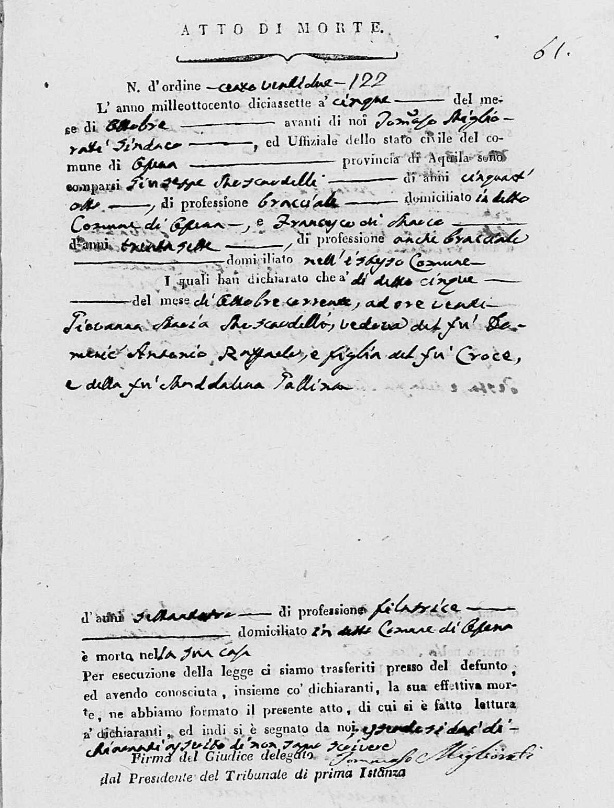 ATTO DI MORTE.
61.
N. d'ordine cento ventidue 122
L' anno milleottocento diciassette a' cinque del me-
se di Ottobre avanti di noi Tomaso Miglio-
rati Sindaco, ed Uffiziale dello stato civile del co-
mune di Ofena provincia di Aquila sono
comparsi Giuseppe Moscardelli di anni cinquant'
otto, di professione bracciale domiciliato in detto
Comune di Ofena, e Francesco di Marco
d'anni trentasette, di professione anche bracciale
domiciliato nell'istesso Comune
I quali han dichiarato che a' di detto cinque
del mese di Ottobre corrente, ad ore venti
Giovanna Maria Moscardelli, vedova del fu' Do-
menic' Antonio Raffaele, e figlia del fu' Croce,
e della fu' Maddalena
d'anni settantatre di professione filatrice
domiciliato in detto Comune di Ofena
è morta nella sua casa
Per esecuzione della legge ci siamo trasferiti presso del defunto,
ed avendo conosciuta, insieme co' dichiaranti, la sua effettiva mor-
te, ne abbiamo formato il presente atto, di cui si è fatto lettura
a' dichiaranti, ed indi si è segnato da noi essendosi da' di-
chiaranti asserito di non saper scrivere
Firma del Giudice delegato Tommaso Migliorati
dal Presidente del Tribunale di prima Istanza